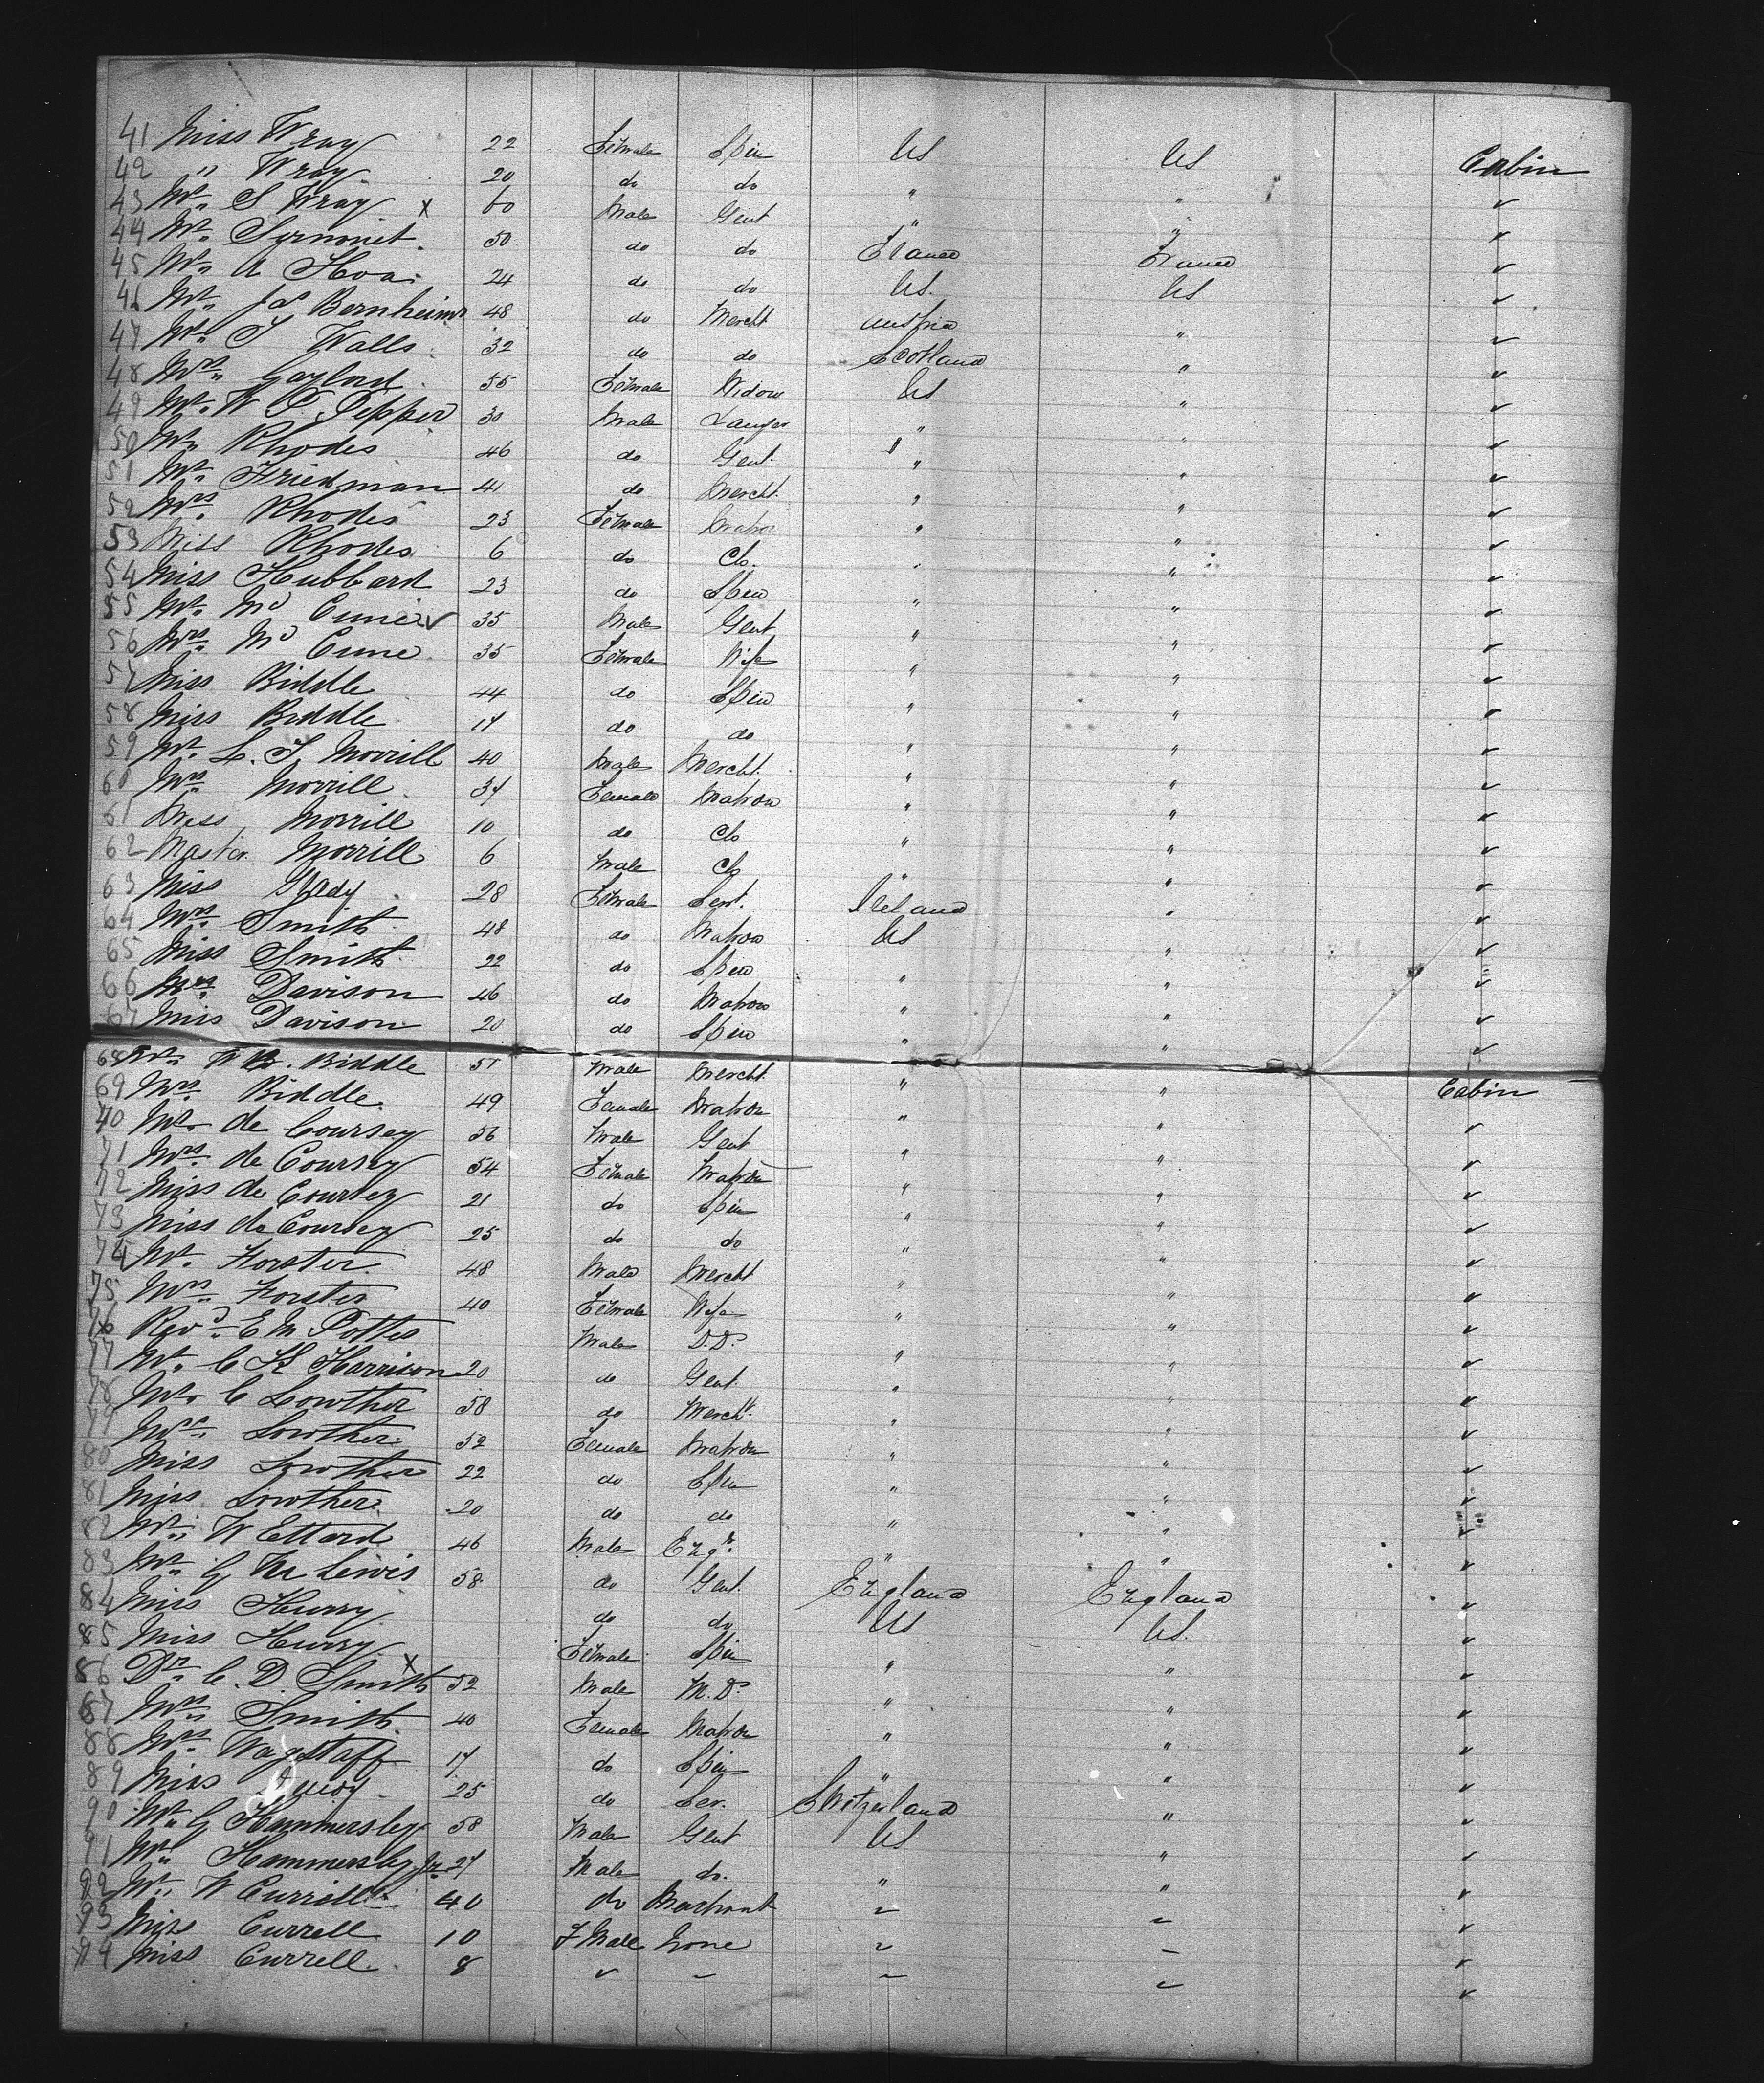 41 Miss Wray 22 Female Spin US US Cabin
42 " Wray 20 do do " " ✓
43 Mr. S Wray x 60 Male Gent " " ✓
44 Mr. 50 do do France France ✓
45 Mr. A 24 do do US. US ✓
46 Mr. Jas Bernheimr 48 do Mercht Austria " ✓
47 Mr. J Walls 32 do do Scotland " ✓
48 Mrs. Gaylord 55 Female Widow US " ✓
49 Mr. W P Pepper 30 Male " " ✓
50 Mr. Rhodes 46 do Gent. " " ✓
51 Mr. Friedman 41 do Mercht. " " ✓
52 Mrs. Rhodes 23 Female Matron " " ✓
53 Miss Rhodes 6 do Ch. " " ✓
54 Miss Hubbard 23 do Spin " " ✓
55 Mr. Mc Cune ✓ 35 Male Gent " " ✓
56 Mrs. Mc Cune 35 Female Wife " " ✓
57 Miss Biddle 44 do Spin " " ✓
58 Miss Biddle 17 do do " " ✓
59 Mr. L. J Morrill 40 Male Mercht. " " ✓
60 Mrs Morrill 37 Female Matron " " ✓
61 Miss Morrill 10 do Ch " " ✓
62 Master Morrill 6 Male Ch " " ✓
63 Miss 28 Female Servt. Ireland " ✓
64 Mrs. Smith 48 do Matron US " ✓
65 Miss Smith 22 do Spin " " ✓
66 Mrs. Davison 46 do Matron " " ✓
67 Miss Davison 20 do Spin " " ✓
68 Mr. W B. Biddle 51 Male Mercht. " " Cabin
69 Mrs. Biddle 49 Female Matron " " ✓
70 Mr. de Coursey 56 Male Gent " " ✓
71 Mrs. de Coursey 54 Female Matron " " ✓
72 Miss de Coursey 21 do Spin " " ✓
73 Miss de Coursey 25 do do " " ✓
74 Mr. Forster 48 Male Mercht " " ✓
75 Mrs. Forster 40 Female Wife " " ✓
76 Revd. E M Potter Male D.D. " " ✓
77 Mr. C H Harrison 20 do Gent. " " ✓
78 Mr. C Lowther 58 do Mercht. " " ✓
79 Mrs. Lowther 52 Female Matron " " ✓
80 Miss Lowther 22 do Spin " " ✓
81 Miss Lowther 20 do do " " ✓
82 Mr. W Ettard 46 Male Engr. " " ✓
83 Mr. G Lewis 58 do Gent. England England ✓
84 Miss Hurry do do US US. ✓
85 Miss Hurry Female Spin " " ✓
86 Dr. C. D. Smith x 52 Male M.D. " " ✓
87 Mrs. Smith 40 Female Matron " " ✓
88 Mrs. Wagstaff 17 do Spin " " ✓
89 Miss 25 do Ser. Switzerland " ✓
90 Mr. G Hammersley 58 Male Gent US " ✓
91 Mr. Hammersley Jr. 27 Male do. " " ✓
92 Mr. W Currell 40 do " " ✓
93 Miss Currell 10 F Male None " " ✓
94 Miss Currell 8 " " " " ✓